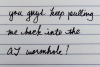 you guys keep pulling
me back into the
AI wormhole!